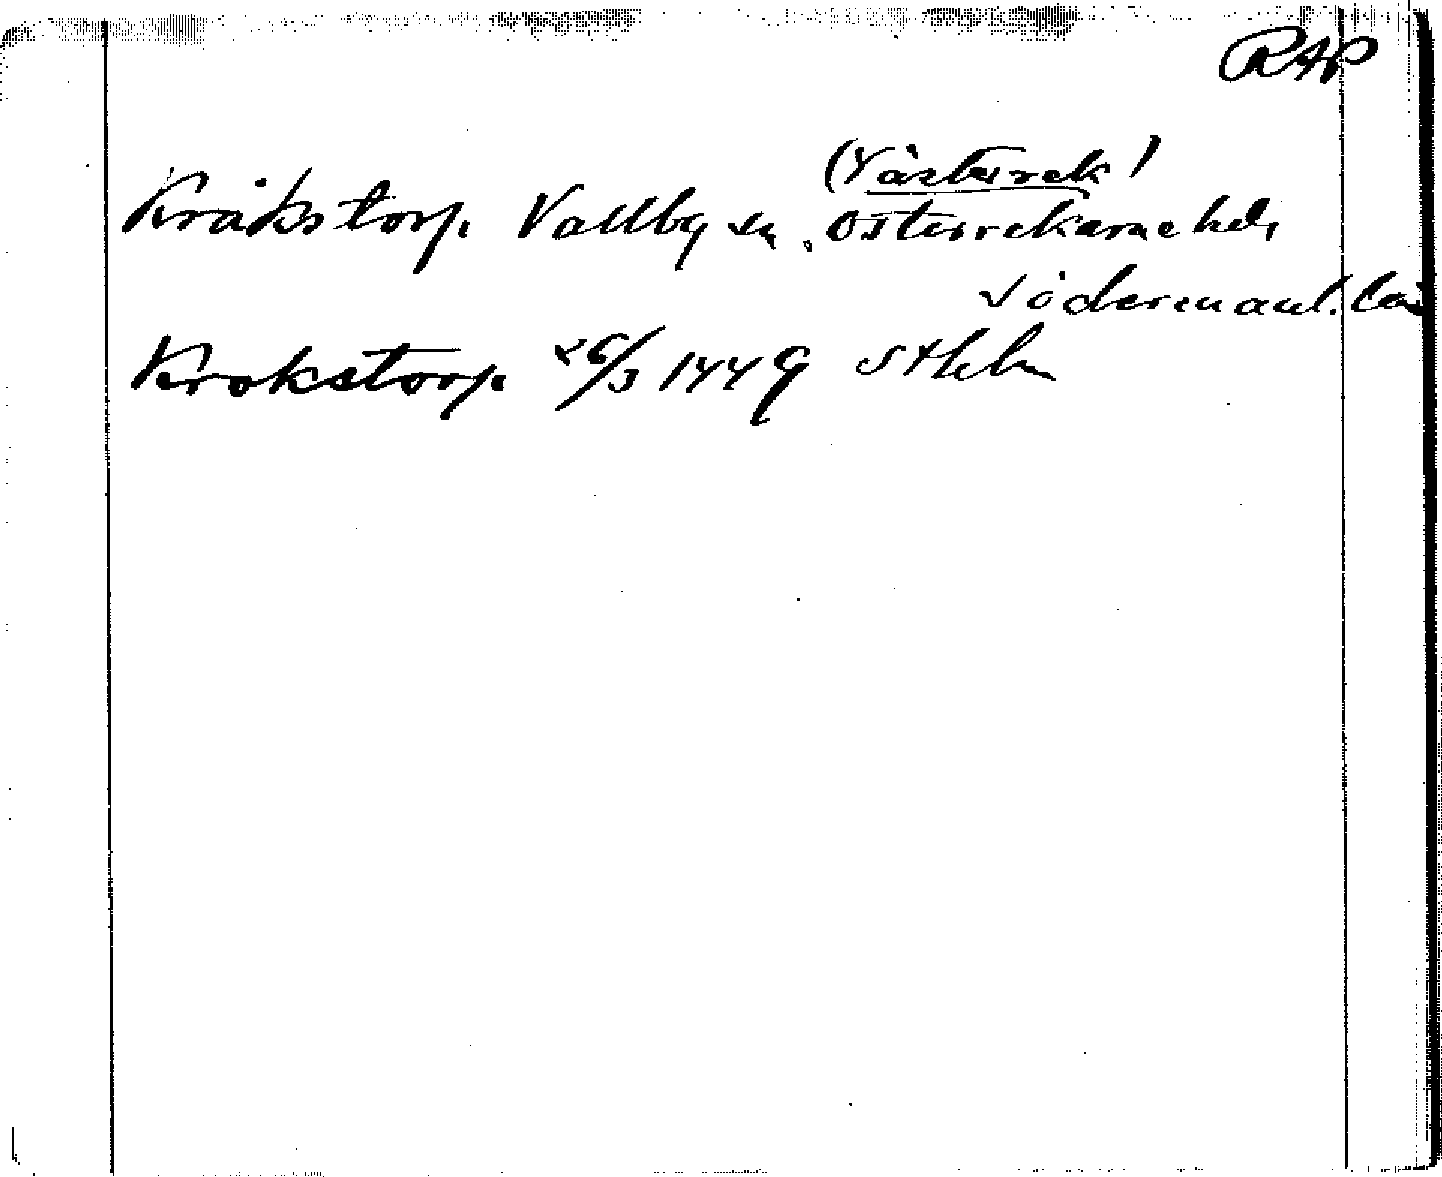 RAP
(Västerrek)
Kråkstorp. Vallby sn. Österrekarne hd,
Södermanl. län
Krokstorp. 26/3 1449 Sthlm